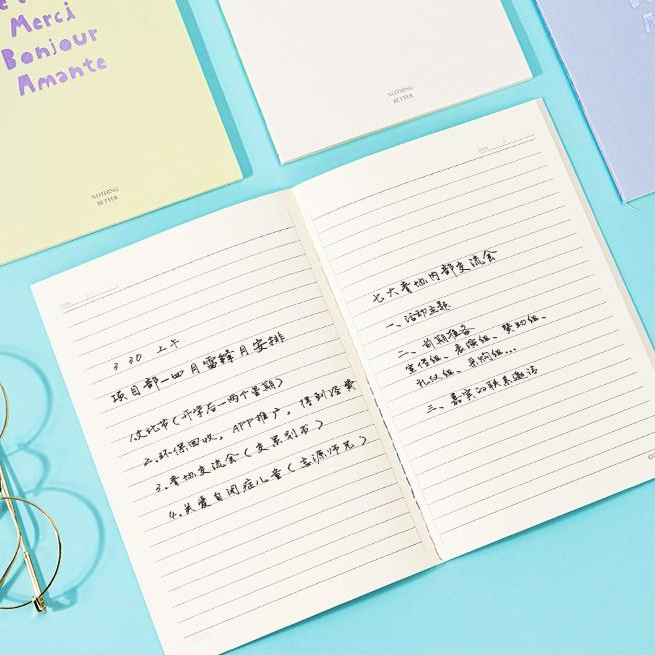 Merci
Bonjour
Amante
NOTHING
BETTER
NOTHING
BETTER
3 30 上午
项目部一四月雷锋月安排
1.文化节(开学后一两个星期)
2.环保回收,APP推广,得到经费
3.青协交流会(交策划书)
4.关爱自闭症儿童(志源师兄)
七大青协内部交流会
一、活动主题
二、前期准备
宣传组、表演组、赞助组、
礼仪组、采购组...
三、嘉宾的联系邀请